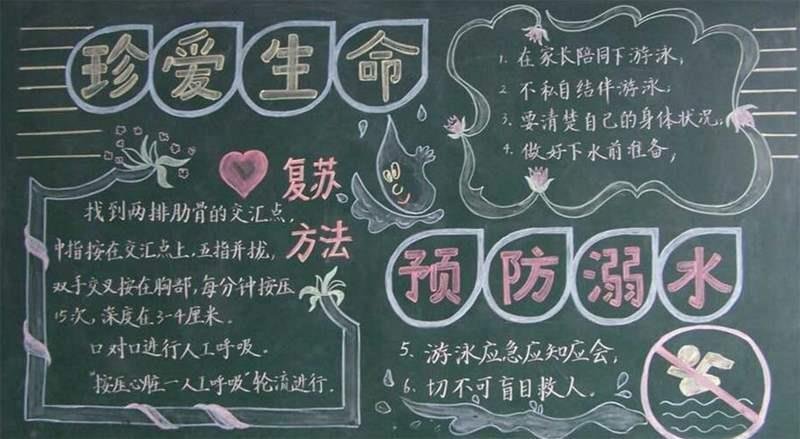 珍爱生命
1. 在家长陪同下游泳,
2 不私自结伴游泳,
3. 要清楚自己的身体状况,
4. 做好下水前准备,
复苏
方法
找到两排肋骨的交汇点,
中指按在交汇点上,五指并拢,
双手交叉按在胸部,每分钟按压
15次,深度在3-4厘米。
口对口进行人工呼吸。
"按压心脏一人工呼吸"轮流进行.
预防溺水
5. 游泳应急应知应会,
6. 切不可盲目救人。